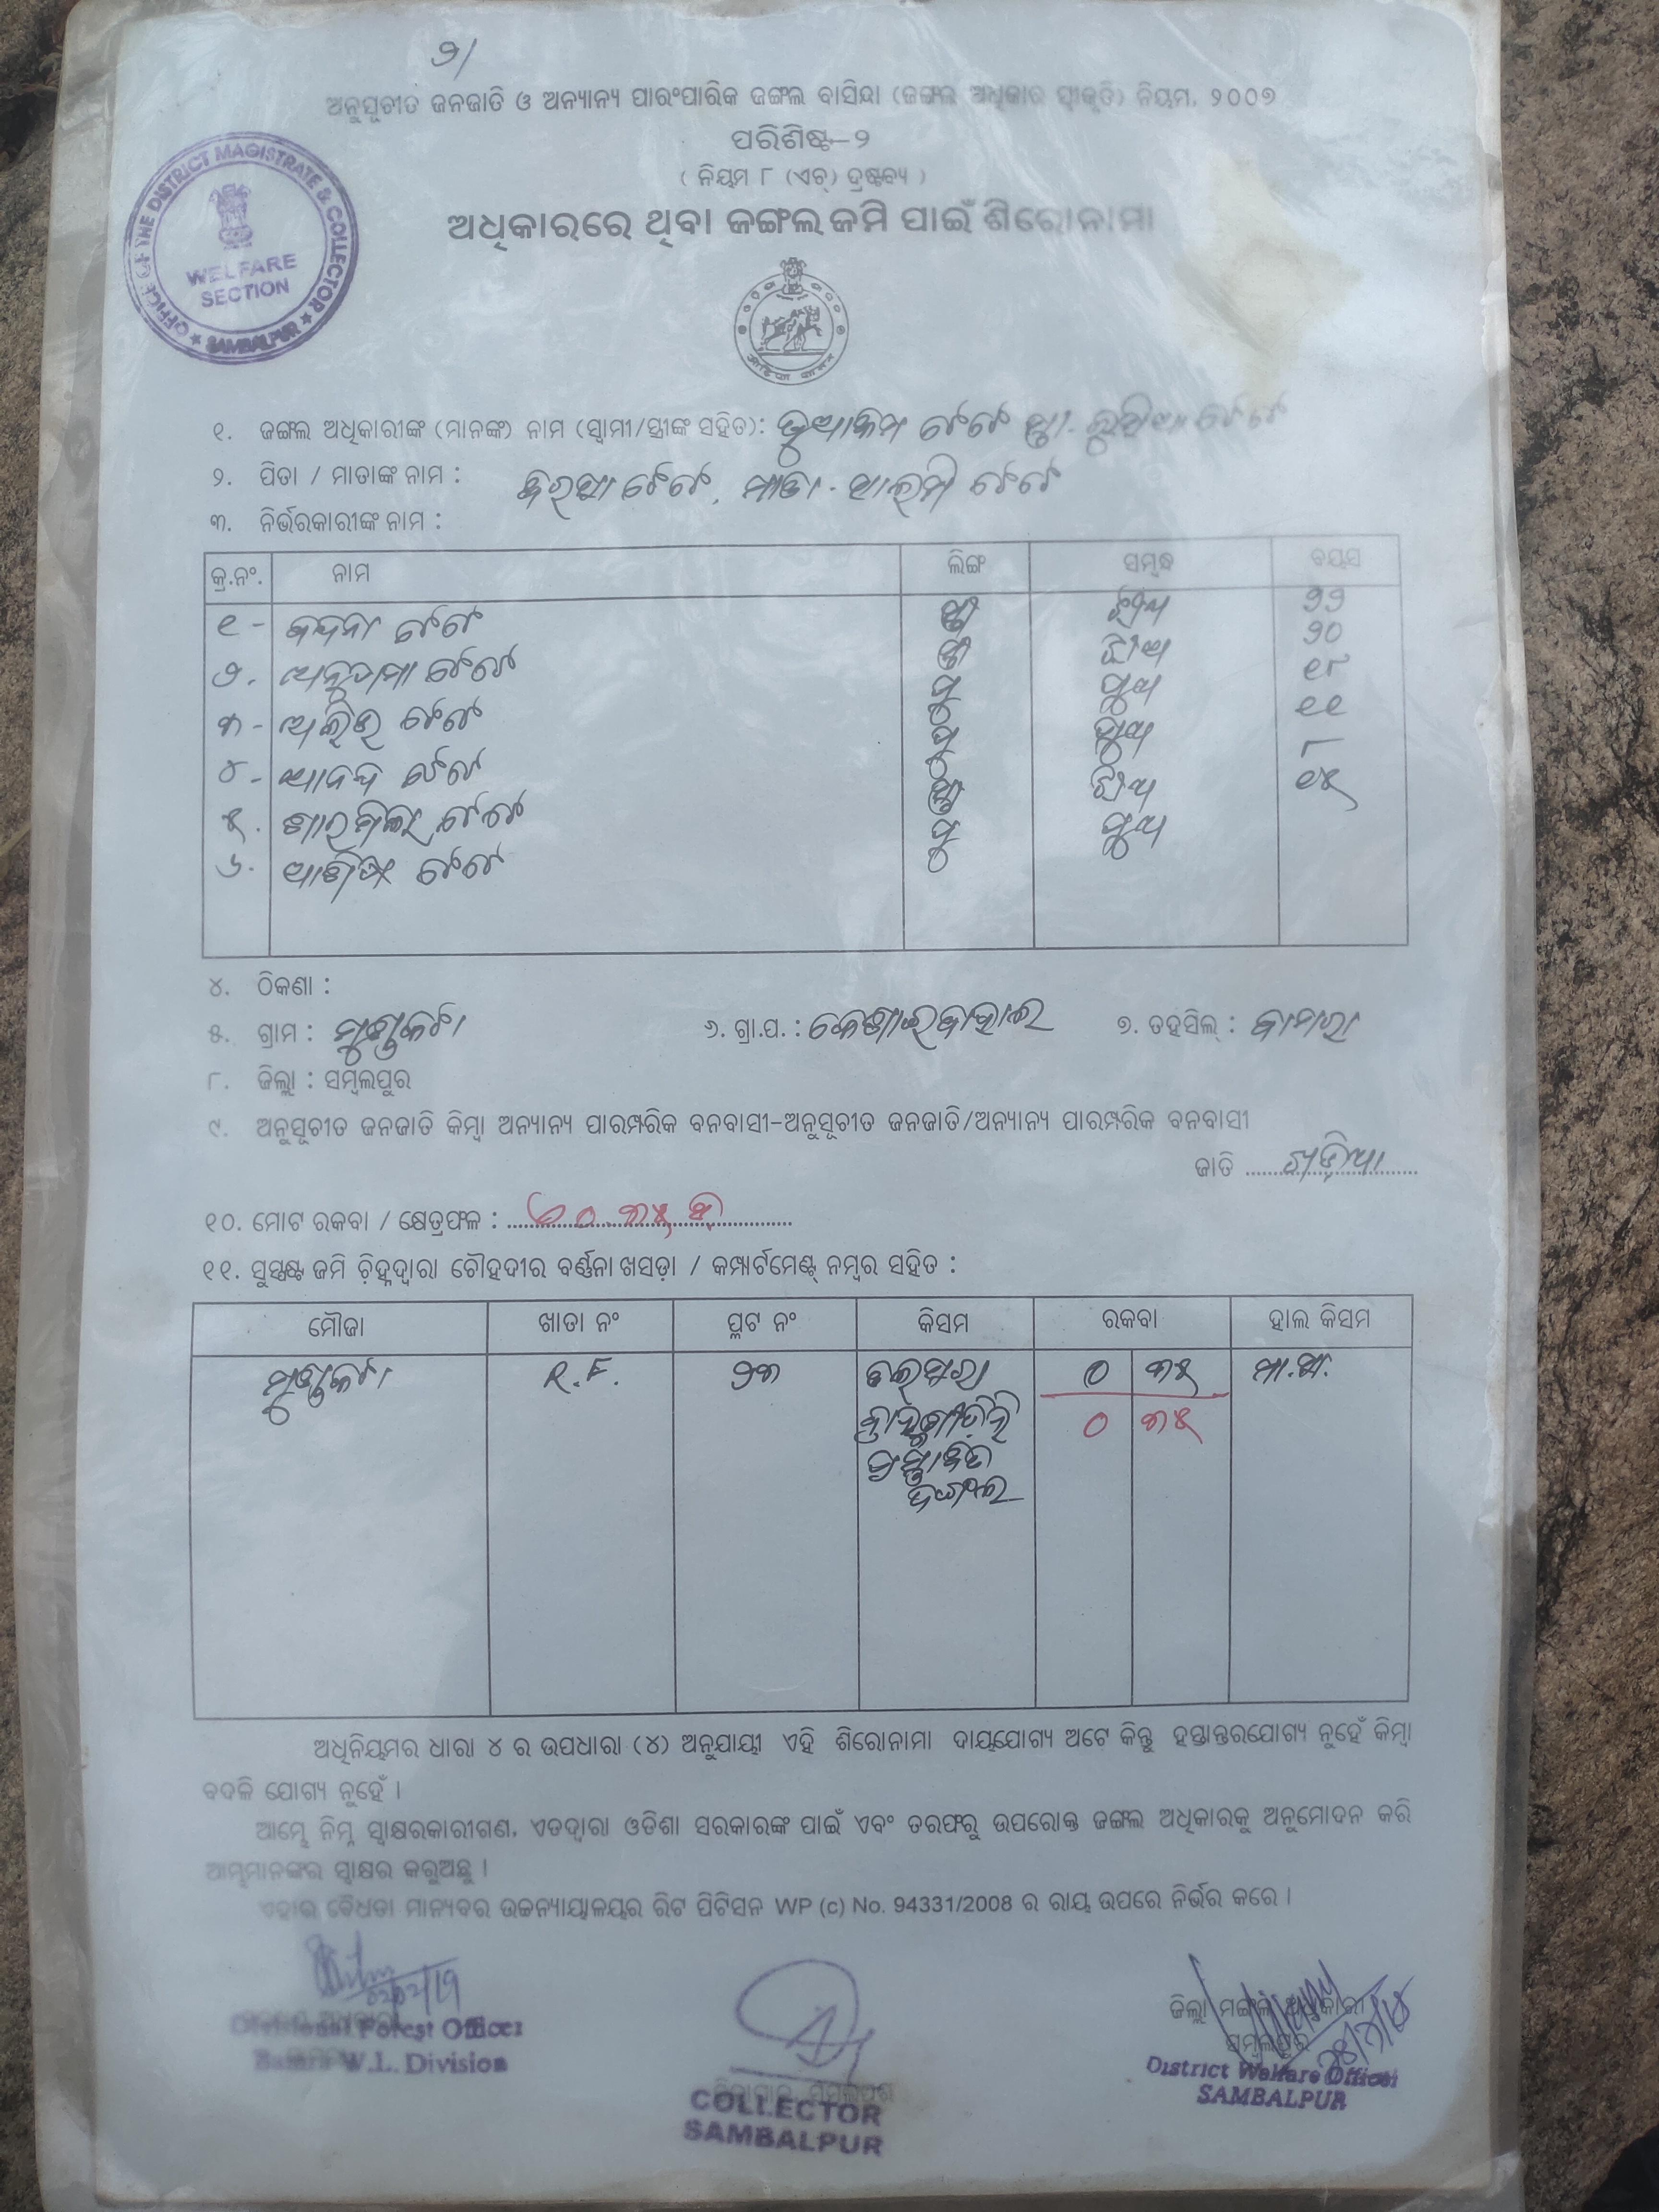 ୬/
ଅନୁସୂଚୀତ ଜନଜାତି ଓ ଅନ୍ୟାନ୍ୟ ପାରଂପାରିକ ଜଙ୍ଗଲ ବାସିନ୍ଦା (ଜଙ୍ଗଲ ଅଧିକାର ସ୍ୱୀକୃତି) ନିୟମ, ୨୦୦୭
ପରିଶିଷ୍ଟ–୨
( ନିୟମ ୮ (ଏଚ୍) ଦ୍ରଷ୍ଟବ୍ୟ )
ଅଧିକାରରେ ଥିବା ଜଙ୍ଗଲ ଜମି ପାଇଁ ଶିରୋନାମା
OFFICE OF THE DISTRICT MAGISTRATE & COLLECTOR ★ SAMBALPUR ★
WELFARE
SECTION
୧. ଜଙ୍ଗଲ ଅଧିକାରୀଙ୍କ (ମାନଙ୍କ) ନାମ (ସ୍ୱାମୀ/ସ୍ତ୍ରୀଙ୍କ ସହିତ): ଟେଟେ ଟେଟେ
୨. ପିତା / ମାତାଙ୍କ ନାମ : ଟେଟେ, ମାତା - ଟେଟେ
୩. ନିର୍ଭରକାରୀଙ୍କ ନାମ :
କ୍ର.ନଂ. ନାମ ଲିଙ୍ଗ ସମ୍ବନ୍ଧ ବୟସ
୧ - ବନ୍ଦନା ଟେଟେ ସ୍ତ୍ରୀ ଝିଅ ୨୨
୨. ଟେଟେ ସ୍ତ୍ରୀ ଝିଅ ୨୦
୩ - ଟେଟେ ପୁ ପୁଅ ୧୮
୪ - ଆନନ୍ଦ ଟେଟେ ପୁ ପୁଅ ୧୧
୫. ଟେଟେ ସ୍ତ୍ରୀ ଝିଅ ୮
୬. ଟେଟେ ପୁ ପୁଅ ୧୫
୪. ଠିକଣା :
୫. ଗ୍ରାମ : ମୁଣ୍ଡକଟା ୬. ଗ୍ରା.ପ. : କେଶାଇବାହାଲ ୭. ତହସିଲ୍ : ବାମରା
୮. ଜିଲ୍ଲା : ସମ୍ବଲପୁର
୯. ଅନୁସୂଚୀତ ଜନଜାତି କିମ୍ବା ଅନ୍ୟାନ୍ୟ ପାରମ୍ପରିକ ବନବାସୀ–ଅନୁସୂଚୀତ ଜନଜାତି/ଅନ୍ୟାନ୍ୟ ପାରମ୍ପରିକ ବନବାସୀ
ଜାତି ଖଡ଼ିଆ
୧୦. ମୋଟ ରକବା / କ୍ଷେତ୍ରଫଳ : ୦.୩୫
୧୧. ସୁସ୍ପଷ୍ଟ ଜମି ଚ଼ିହ୍ନଦ୍ୱାରା ଚୌହଦୀର ବର୍ଣ୍ଣନା ଖସଡ଼ା / କମ୍ପାର୍ଟମେଣ୍ଟ୍ ନମ୍ବର ସହିତ :
ମୌଜା ଖାତା ନଂ ପ୍ଲଟ ନଂ କିସମ ରକବା ହାଲ କିସମ
ମୁଣ୍ଡକଟା R.F. ୨୩ ୦ ୩୫ ମା.ଅ.
୦ ୩୫
ପ୍ରସ୍ତାବିତ
ଜଙ୍ଗଲ
ଅଧିନିୟମର ଧାରା ୪ ର ଉପଧାରା (୪) ଅନୁଯାୟୀ ଏହି ଶିରୋନାମା ଦାୟଯୋଗ୍ୟ ଅଟେ କିନ୍ତୁ ହସ୍ତାନ୍ତରଯୋଗ୍ୟ ନୁହେଁ କିମ୍ବା
ବଦଳି ଯୋଗ୍ୟ ନୁହେଁ ।
ଆମ୍ଭେ ନିମ୍ନ ସ୍ୱାକ୍ଷରକାରୀଗଣ, ଏତଦ୍ୱାରା ଓଡିଶା ସରକାରଙ୍କ ପାଇଁ ଏବଂ ତରଫରୁ ଉପରୋକ୍ତ ଜଙ୍ଗଲ ଅଧିକାରକୁ ଅନୁମୋଦନ କରି
ଆମ୍ଭମାନଙ୍କର ସ୍ୱାକ୍ଷର କରୁଅଛୁ ।
ଏହାର ବୈଧତା ମାନ୍ୟବର ଉଚ୍ଚନ୍ୟାୟାଳୟର ରିଟ ପିଟିସନ WP (c) No. 94331/2008 ର ରାୟ ଉପରେ ନିର୍ଭର କରେ ।
Divisional Forest Officer
Bamra W.L. Division
COLLECTOR
SAMBALPUR
ଜିଲ୍ଲା ମଙ୍ଗଳ ଅଧିକାରୀ
ସମ୍ବଲପୁର
District Welfare Officer
SAMBALPUR